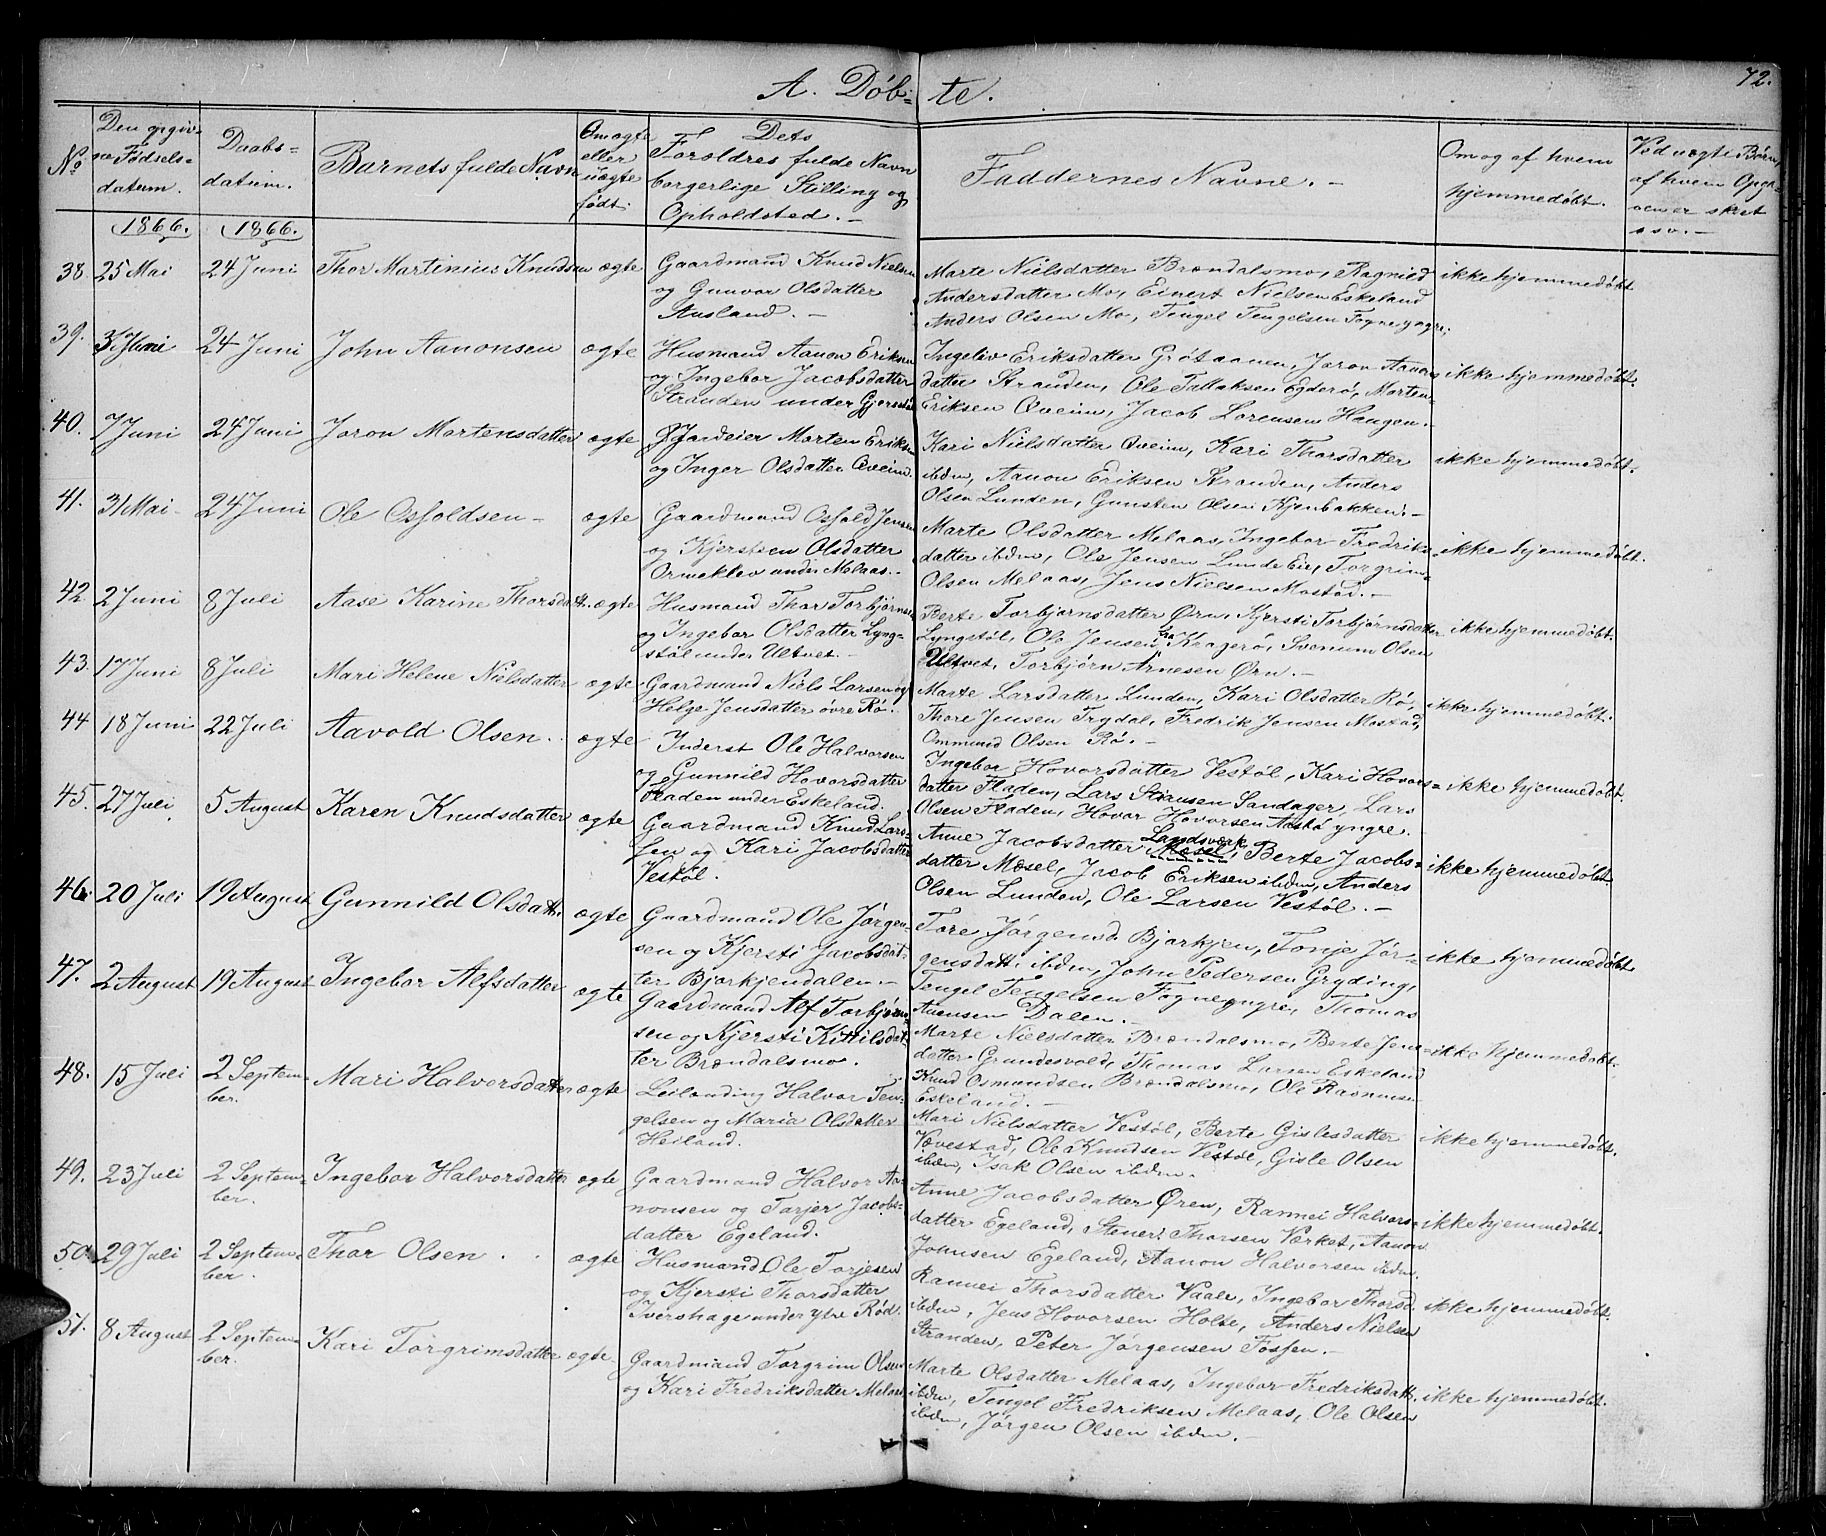 72.
A. Døb= te.
No
Den opgiv=
ne Fødsels=
datum.
Daabs=
datum.
Barnets fulde Navn
Om ægte
eller
uægte
født.
Dets
Foroldres fulde Navn
borgerlige Stilling og
Opholdsted. –
Faddernes Navne. –
Om og af hvem
hjemmedøbt.
Ved uægte Børn,
af hvem Opga=
ven er skret
1866. 1866.
38. 25 Mai 24 Juni Thor Martinius Knudsen ægte
Gaardmand Knud Nielsen
og Gunvor Olsdatter
Ausland. –
Marte Nielsdatter Brændalsmo, Ragnild
Andersdatter Mo, Einert Nielsen Eskeland
Anders Olsen Mo, Tengel Tengelsen Fogne yngre.
ikke hjemmedøbt
39. 3 Juni 24 Juni John Aanonsen ægte
Husmand Aanon Eriksen
og Ingebor Jacobsdatter
Stranden under Gjerestad
Ingeliv Eriksdatter Grøtaanen, Joron Aanons
datter Stranden, Ole Tallaksen Egderø, Morten
Eriksen Qveim, Jacob Lorensen Haugen. –
ikke hjemmedøbt.
40. 7 Juni 24 Juni Joron Martensdatter ægte
Gjardeier Morten Eriksen
og Inger Olsdatter Qveim.
Kari Nielsdatter Qveim, Kari Thorsdatter
ibdm, Aanon Eriksen Stranden, Anders
Olsen Lunden, Gunsten Olsen Kjenbakken. –
ikke hjemmedøbt.
41. 31 Mai 24 Juni Ole Osfoldsen – ægte
Gaardmand Osfold Jensen
og Kjersteen Olsdatter
Ormeklev under Melaas. –
Marte Olsdatter Melaas, Ingebor Fredrik=
datter ibdm, Ole Jensen Lunde Eie, Torgrim
Olsen Melaas, Jens Nielsen Mostad. –
ikke hjemmedøbt.
42. 2 Juni 8 Juli Aase Karine Thorsdatt. ægte
Husmand Thor Torbjørnsen
og Ingebor Olsdatter Lyng=
støl under Ultvet. –
Berte Torbjørnsdatter Ørn, Kjersti Torbjørnsdatter
Lyngstøl, Ole Jensen fra Kragerø, Svenum Olsen
Ultvet, Torbjørn Arnesen Ørn. –
ikke hjemmedøbt.
43. 17 Juni 8 Juli Mari Helene Nielsdatter ægte
Gaardmand Niels Larsen og
Helge Jensdatter øvre Rø.
Marte Larsdatter Lunden, Kari Olsdatter Rø,
Thore Jensen Trydal, Fredrik Jensen Mostad,
Ommund Olsen Rø. –
ikke hjemmedøbt.
44 18 Juni 22 Juli Aavold Olsen. ægte
Inderst Ole Halvorsen
og Gunnild Hovorsdatter
Fladen under Eskeland.
Ingebor Hovorsdatter Vestøl, Kari Hovors=
datter Fladen, Lars Stiansen Sandager, Lars
Olsen Fladen, Hovor Hovorsen Aastø yngre. –
ikke hjemmedøbt.
45. 27 Juli 5 August Karen Knudsdatter ægte
Gaardmand Knud Lar=
sen og Kari Jacobsdatter
Vestøl.
Anne Jacobsdatter Mæsel, Landsværk Berte Jacobs=
datter Mæsel, Jacob Eriksen ibdm, Anders
Olsen Lunden, Ole Larsen Vestøl. –
ikke hjemmedøbt
46. 20 Juli 19 August Gunnild Olsdatt. ægte
Gaardmand Ole Jørgen=
sen og Kjersti Jacobsdat=
ter Bjorkjendalen. –
Tore Jørgensd. Bjorkjen, Tonje Jør=
gensdatt. ibdm, John Pedersen Gryding,
Tengel Tengelsen Fogne yngre, Thomas
Auensen Dalen. –
ikke hjemmedøbt
47. 2 August 19 August Ingebor Alfsdatter ægte
Gaardmand Alf Torbjørn=
sen og Kjersti Kittilsdat=
ter Brændalsmo.
Marte Nielsdatter Brændalsmo, Berte Jens=
datter Grundesvold, Thomas Larsen Eskeland
Knud Osmundsen Brændalsmo, Ole Rasmusen
Eskeland. –
ikke hjemmedøbt.
48. 15 Juli 2 Septem=
ber. Mari Halvorsdatter ægte
Leilending Halvor Ten=
gelsen og Maria Olsdatter
Heiland.
Mari Nielsdatter Vestøl, Berte Gislesdatter
Vævestad, Ole Knudsen Vestøl, Gisle Olsen
ibdm, Isak Olsen ibdm. –
ikke hjemmedøbt.
49. 23 Juli 2 Septem=
ber. Ingebor Halvorsdatter ægte
Gaardmand Halvor Aa=
nonsen og Torjer Jacobs=
datter Egeland.
Anne Jacobsdatter Øren, Rannei Halvors=
datter Egeland, Stener Thorsen Værket, Aanon
Johnsen Egeland, Aanon Halvorsen ibdm.
ikke hjemmedøbt.
50. 29 Juli 2 Septem=
ber. Thor Olsen . . ægte
Husmand Ole Torjesen
og Kjersti Thorsdatter
Ivershage under ytre Rød.
Rannei Thorsdatter Vaale, Ingebor Thorsd.
ibdm, Jens Hovorsen Holte, Anders Nielsen
Stranden, Peter Jørgensen Fossen. –
ikke hjemmedøbt.
51. 8 August 2 Septem=
ber. Kari Torgrimsdatter ægte
Gaardmand Torgrim Olsen
og Kari Fredriksdatter Melaas
Marte Olsdatter Melaas, Ingebor Fredriksdatt.
ibdm, Tengel Fredriksen Melaas, Ole Olsen
ibdm, Jørgen Olsen ibdm. –
ikke hjemmedøbt.